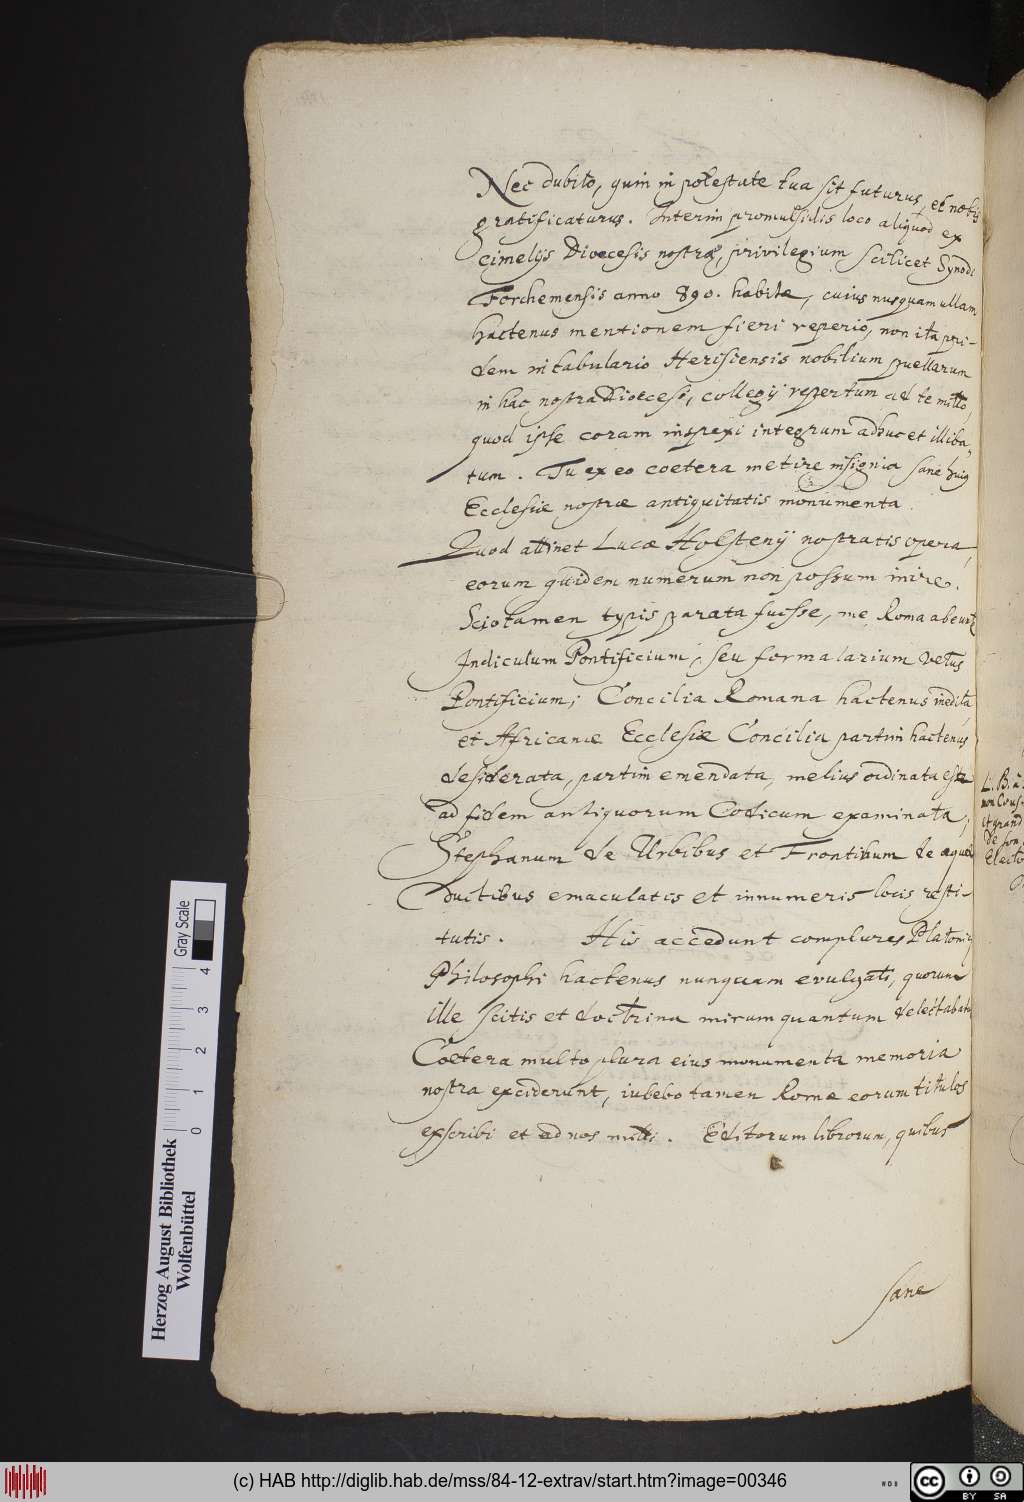 Nec dubito, quin in potestate tua sit futurus, et nobis
gratificaturus. Interim promulsidis loco aliquod ex
cimelijs Dioecesis nostræ, privilegium scilicet Synodi
Forchemensis anno 890. habitæ, cuius nusquam ullam
hactenus mentionem fieri reperio, non ita pri-
dem in tabulario Herisiensis nobilium puellarum
in hac nostra Dioecesi, collegij repertum ad te mitto,
quod ipse coram inspexi integrum adhuc et illiba-
tum. Tu ex eo coetera metire insignia sane huius
Ecclesiæ nostræ antiquitatis monumenta.
Quod attinet Lucæ Holstenij nostratis opera,
eorum quidem numerum non possum inire.
Scio tamen typis parata fuisse, me Roma abeunte
Indiculum Pontificium, seu formalarium vetus
Pontificium; Concilia Romana hactenus inedita,
et Africanæ Ecclesiæ Concilia partim hactenus
desiderata, partim emendata, melius ordinata et
ad fidem antiquorum Codicum examinata,
Stephanum de Urbibus et Frontinum de aquæ
ductibus emaculatis et innumeris locis resti-
tutis. His accedunt complures Platonici
Philosophi hactenus nunquam evulgati, quorum
ille scitis et doctrina mirum quantum delectabatur
Coetera multo plura eius monumenta memoria
nostra exciderunt, iubebo tamen Romæ eorum titulos
exscribi et ad nos mitti. Editorum librorum, quibus
sane
L. B. a
non Cous
et grand
de son
Electo
Gray Scale
0 1 2 3 4
Herzog August Bibliothek
Wolfenbüttel
(c) HAB http://diglib.hab.de/mss/84-12-extrav/start.htm?image=00346
cc BY SA